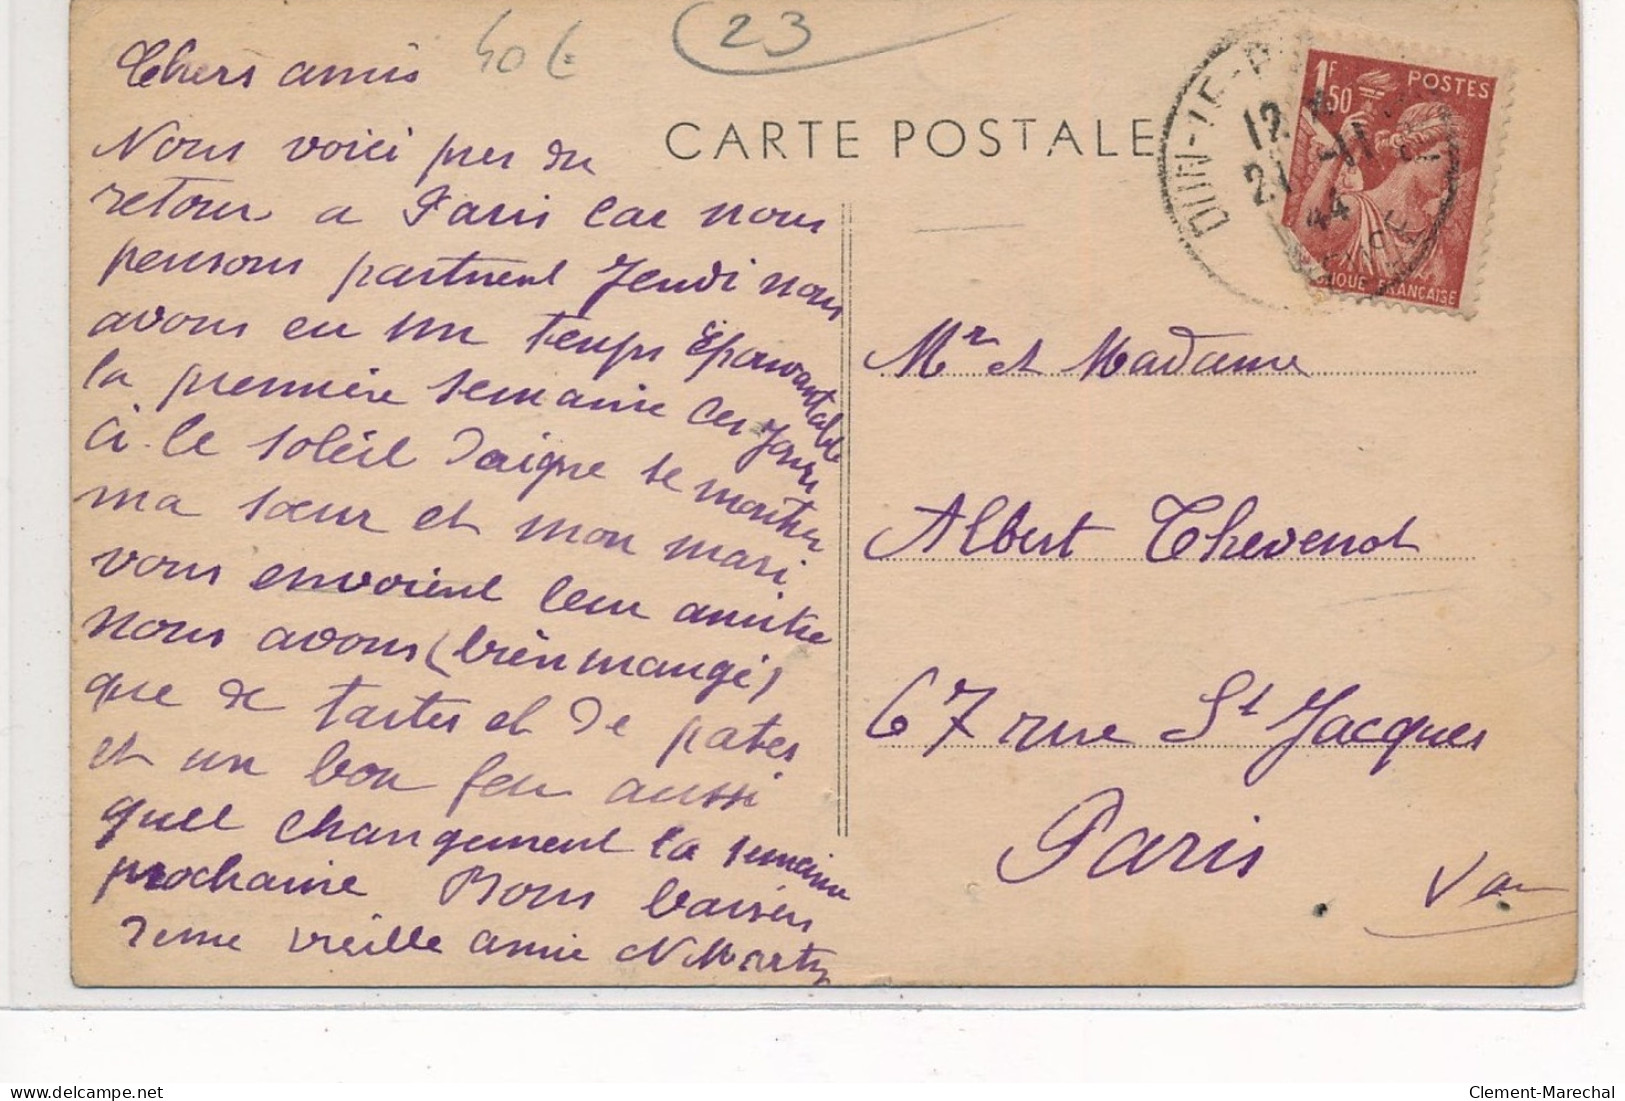 40 €
23
Chers amis
Nous voici pres du
retour a Paris car nous
pensons partirent Jeudi nous
avons eu un temps épouvantable
la première semaine ces jours
ci le soleil daigne se montrer
ma sœur et mon mari
vous envoient leur amitie
nous avons (bien mangé)
que de tartes et de pates
et un bon feu aussi
quel changement la semaine
prochaine Bons baisers
vieille amie N Marty
CARTE POSTALE
POSTES
1F
50
12
21 -11
44
FRANÇAISE
Mr et Madame
Albert Thevenot
67 rue St Jacques
Paris
Clement-Marechal
delcampe.net